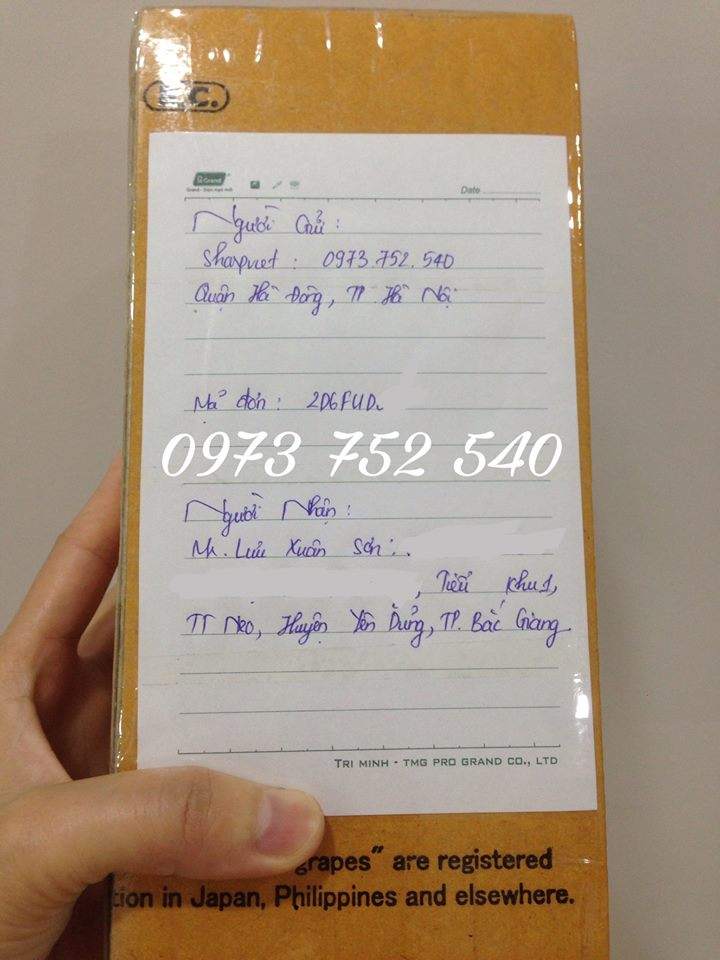 Grand
Date
Người Gửi:
Sharpviet: 0973.752.540
Quận Hà Đông, TP. Hà Nội
Mã đơn: 2D6FUD
0973 752 540
Người Nhận:
Mr. Lưu Xuân Sơn:
, Tiểu Khu 1,
TT Neo, Huyện Yên Dũng, TP. Bắc Giang
TRI MINH - TMG PRO GRAND CO., LTD
grapes" are registered
tion in Japan, Philippines and elsewhere.